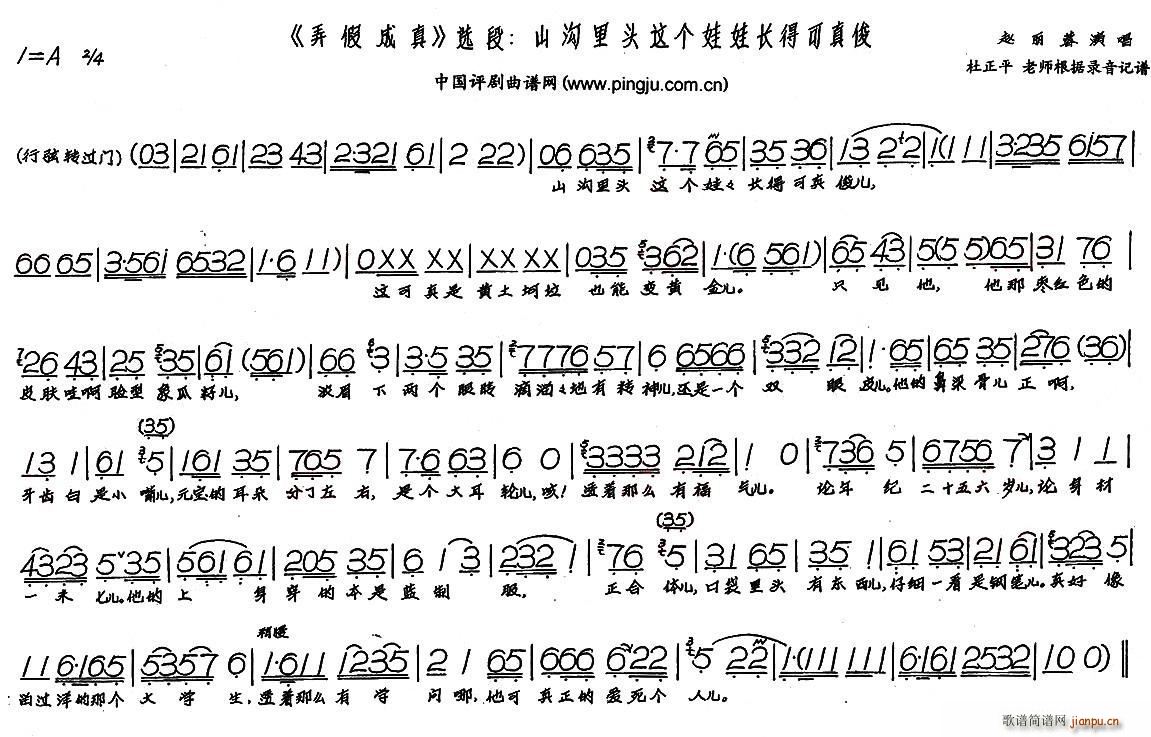 《弄假成真》选段：山沟里头这个娃娃长得可真俊
1=A 2/4
赵丽蓉演唱
中国评剧曲谱网(www.pingju.com.cn)
杜正平 老师根据录音记谱
(行弦转过门) (03|21 61|23 43|2·321 61|2 22)|06 635|7·7 65|35 36|13 2 2|1(111|3·235 6157|
山沟里头 这个娃々 长得可真 俊儿，
66 65|3·561 6532|1·6 11)|0XX XX|XX XX|035 362|1·(6 561)|65 43|5(5 5)65|31 76|
这可真是 黄土坷垃 也能变黄 金儿。 只见他， 他那枣红色的
26 43|25 35|61 (561)|66 3|3·5 35|7776 57|6 6566|332 12|1·65|65 35|276 (36)|
皮肤哇啊 脸型象瓜籽儿， 浓眉下两个眼睛 滴溜々地有转神儿，还是一个 双眼皮儿。他的鼻梁骨儿正啊，
(35)
13 1|61 5|161 35|765 7|7·6 63|6 0|3333 212|1 0|736 5|6756 7|3 11|
牙齿白是小嘴儿，元宝的耳朵 分了左右，是个大耳轮儿，咳！透着那么有福气儿。 论年纪二十五六岁儿，论身材
(35)
4323 5 35|561 61|205 35|6 1 3|232 1|76 5|31 65|35 1|61 53|21 61|323 5|
一米七儿。他的上 身穿的本是蓝制服。 正合体儿，口袋里头有东西儿，仔细一看是钢笔儿。真好像
稍慢
11 6·165|53357 6|1·611 1235|2 1 65|666 622|5 22|1·(111 111|6·161 2532|1 0 0)‖
泊过洋的那个大学生，透着那么有学问哪，他可真正的爱死个人儿。
歌谱简谱网
jianpu.cn